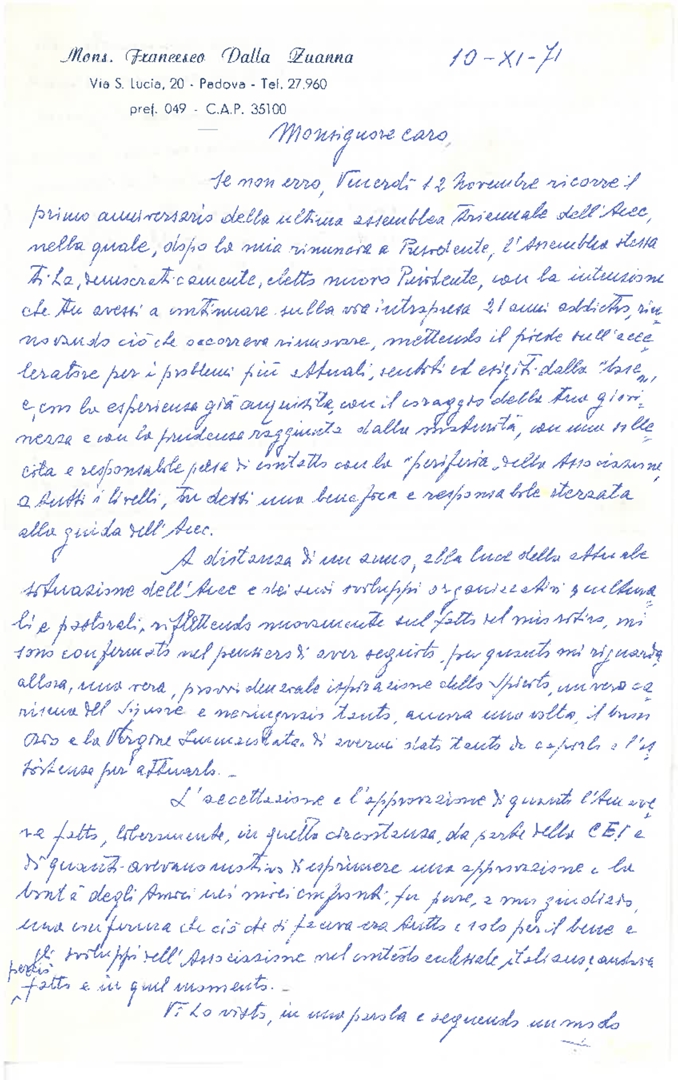 Mons. Francesco Dalla Zuanna
Via S. Lucia, 20 - Padova - Tel. 27.960
pref. 049 - C.A.P. 35100
10-XI-71
Monsignore caro,
Se non erro, Venerdì 12 Novembre ricorre il
primo anniversario della ultima assemblea Triennale dell'Acec,
nella quale, dopo la mia rinuncia a Presidente, l'Assemblea stessa
Ti ha, democraticamente, eletto nuovo Presidente, con la intenzione
che tu avessi a continuare sulla via intrapresa 21 anni addietro, rin-
novando ciò che occorreva rinnovare, mettendo il piede sull'acce-
leratore per i problemi più attuali, sentiti ed esigiti dalla "base"
e, con la esperienza già acquisita, con il coraggio della tua giovi-
nezza e con la prudenza raggiunta dalla maturità, con una solle-
cita e responsabile presa di contatto con la "periferia" della Associazione
a tutti i livelli, tu dessi una benefica e responsabile sterzata
alla guida dell'Acec.
A distanza di un anno, alla luce della attuale
situazione dell'Acec e dei suoi sviluppi organizzativi, cultura-
li e pastorali, riflettendo nuovamente sul fatto del mio ritiro, mi
sono confermato nel pensiero di aver seguito, per quanto mi riguarda,
allora, una vera, provvidenziale ispirazione dello Spirito, un vero ca-
risma del Signore e ne ringrazio tanto, ancora una volta, il buon
Dio e la Vergine Immacolata di avermi dato tanto da capirlo e l'as-
sistenza per attuarlo. -
L'accettazione e l'approvazione di quanto l'Acec ave-
va fatto, liberamente, in quella circostanza, da parte della CEI e
di quanti avevano motivo di esprimere una approvazione e la
bontà degli Amici nei miei confronti, fu pure, a mio giudizio,
una conferma che ciò che si faceva era tutto e solo per il bene e
gli sviluppi dell'Associazione nel contesto ecclesiale italiano, e andava
perciò fatto e in quel momento. -
Ti ho visto, in una parola e seguendo un modo